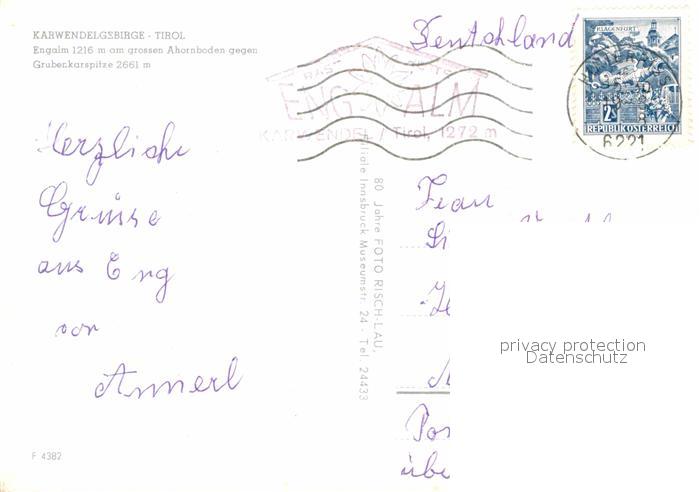 KARWENDELGEBIRGE - TIROL
Engalm 1216 m am grossen Ahornboden gegen
Grubenkarspitze 2661 m
Deutschland
KLAGENFURT
2S
REPUBLIK ÖSTERREICH
6221
ENG ALM
KARWENDEL / Tirol, 1272 m
Herzliche
Grüsse
aus Eng
von
Annerl
80 Jahre FOTO RISCH-LAU,
Filiale Innsbruck Museumstr. 24 - Tel. 24433
Frau
privacy protection
Datenschutz
F 4382